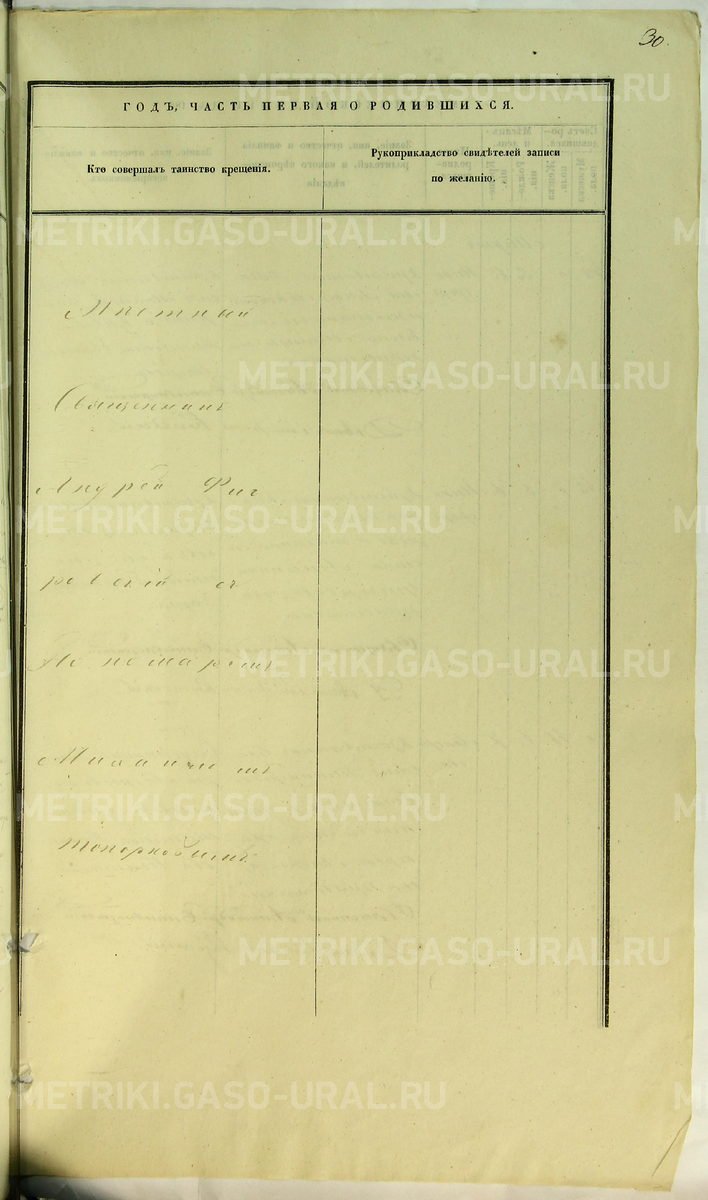 30.
ГОДЪ, ЧАСТЬ ПЕРВАЯ О РОДИВШИХСЯ.
Кто совершалъ таинство крещенія.
Рукоприкладство свидѣтелей записи
по желанію.
Мѣстный
Священникъ
Андрей Фиг
ровскій съ
Пономаремъ
Михаиломъ
Топорковымъ
METRIKI.GASO-URAL.RU
METRIKI.GASO-URAL.RU
METRIKI.GASO-URAL.RU
METRIKI.GASO-URAL.RU
METRIKI.GASO-URAL.RU
METRIKI.GASO-URAL.RU
METRIKI.GASO-URAL.RU
METRIKI.GASO-URAL.RU